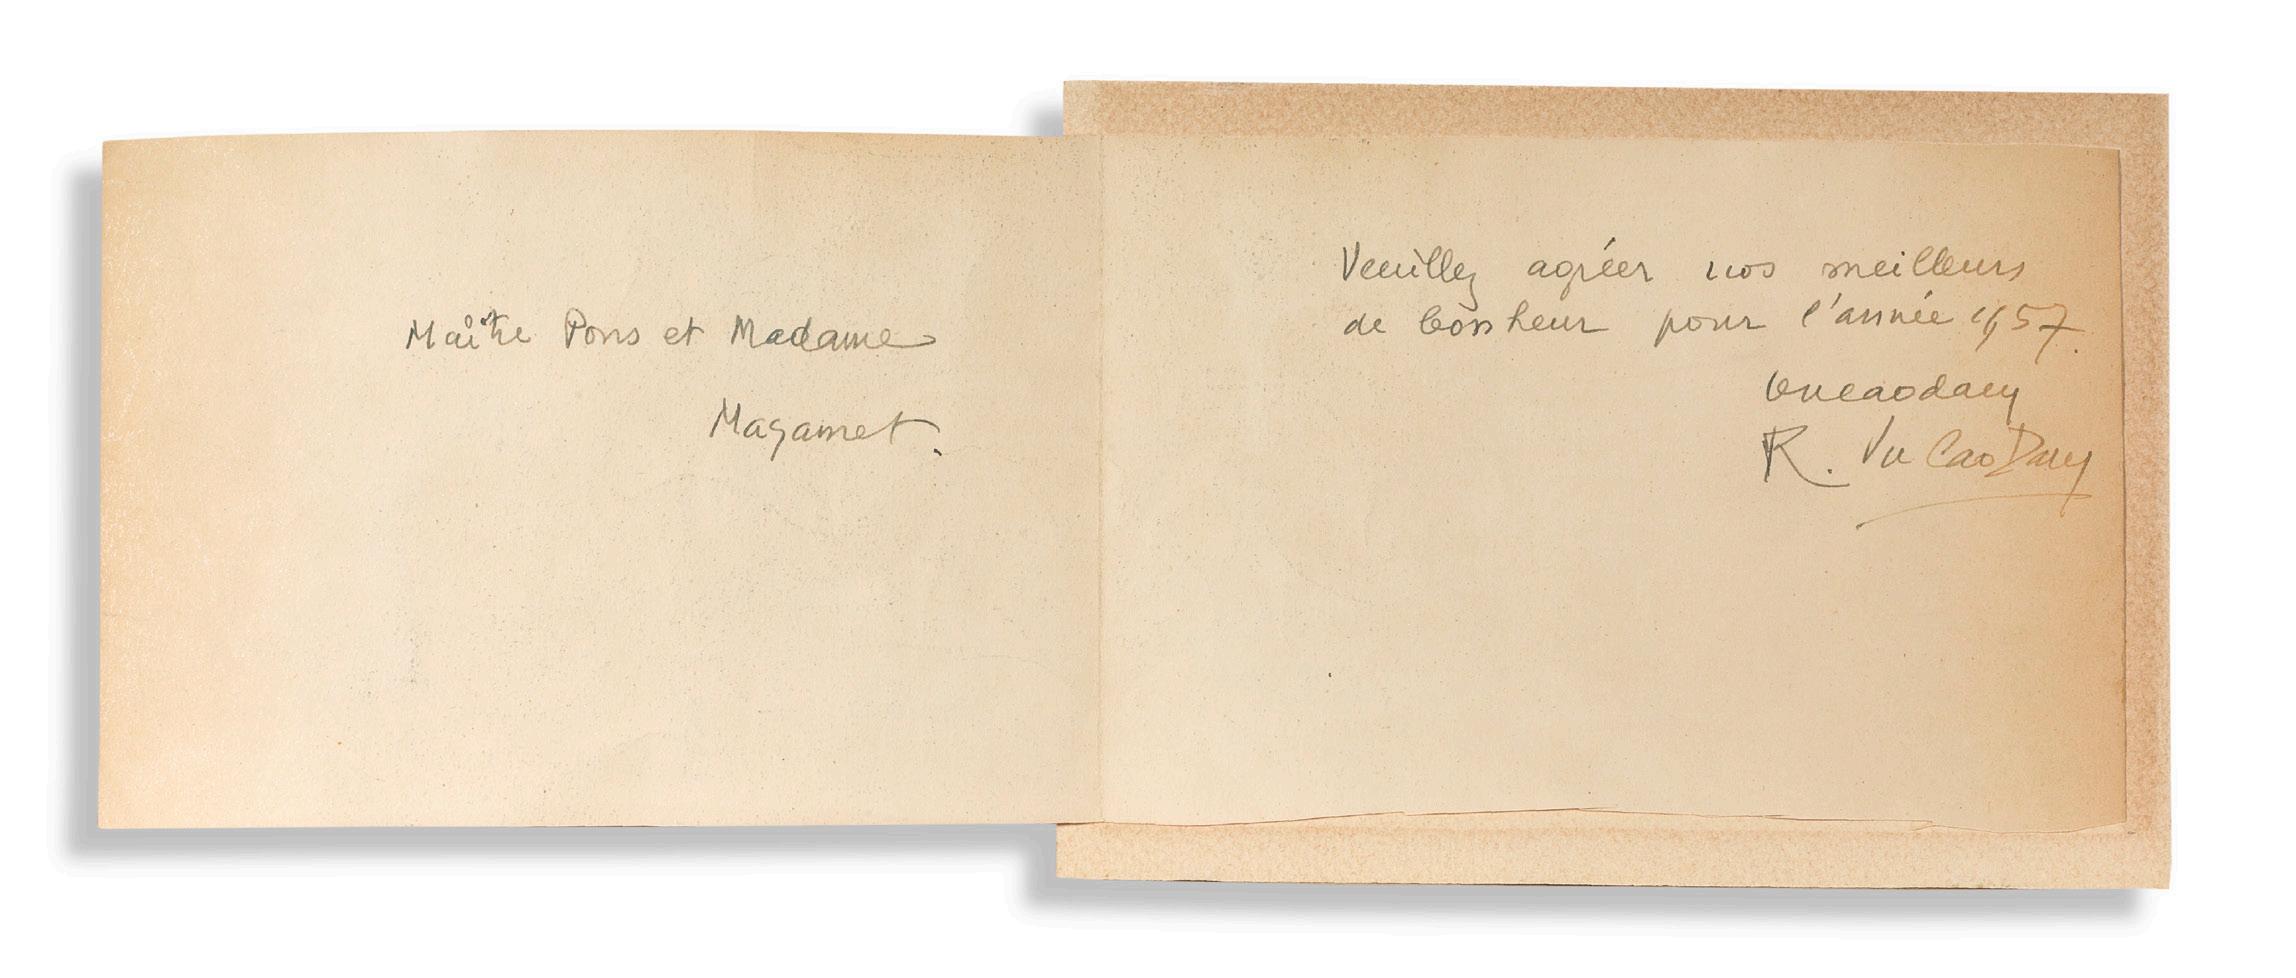 Maître Pons et Madame
Magamet.
Veuillez agréer nos meilleurs
de bonheur pour l'année 1957.
vucaodam
R. Vu Cao Dam